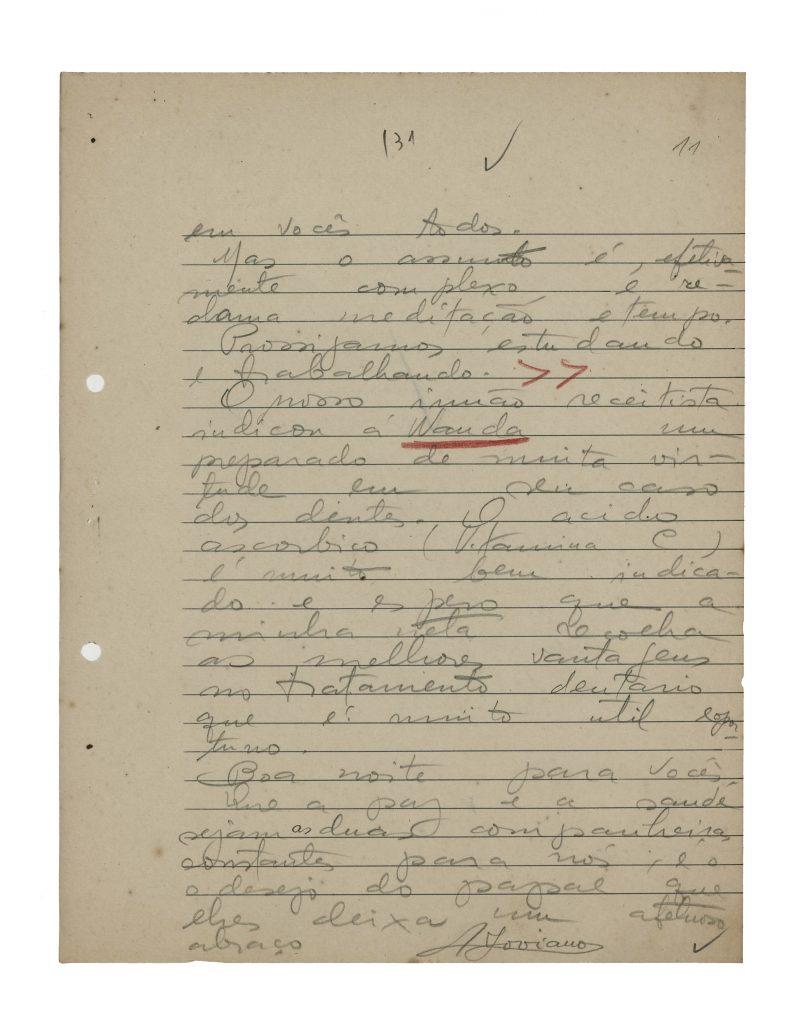 131 11
em vocês todos.
Mas o assunto é, efetiva-
mente complexo, e re-
clama meditação e tempo.
Prossigamos estudando
e trabalhando. >>
O nosso irmão receitista
indicou á Wanda um
preparado de muita vir-
tude em seu caso
dos dentes. O acido
ascorbico (Vitamina C)
é muito bem indica-
do e espero que a
minha neta recolha
as melhores vantagens
no tratamento dentario
que é muito util e opor-
tuno.
Boa noite para vocês
Que a paz e a saude
sejam as duas companheiras
constantes para nós, é o
o desejo do papae que
lhes deixa um afetuoso
abraço A Joviano